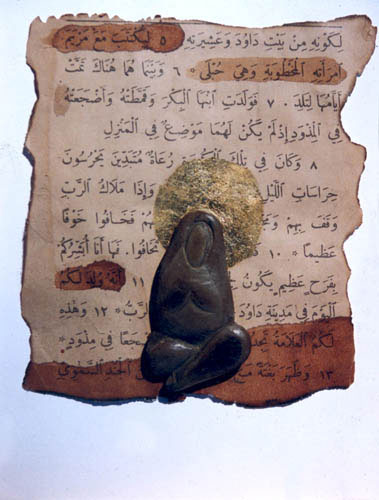 لِكَوْنِهِ مِنْ بَيْتِ دَاوُدَ وَعَشِيرَتِهِ ٥ لِيُكْتَتَبَ مَعَ مَرْيَمَ
امْرَأَتِهِ الْمَخْطُوبَةِ وَهِيَ حُبْلَى * ٦ وَبَيْنَمَا هُمَا هُنَاكَ تَمَّتْ
أَيَّامُهَا لِتَلِدَ ٧ فَوَلَدَتِ ابْنَهَا الْبِكْرَ وَقَمَّطَتْهُ وَأَضْجَعَتْهُ
فِي الْمِذْوَدِ إِذْ لَمْ يَكُنْ لَهُمَا مَوْضِعٌ فِي الْمَنْزِلِ
٨ وَكَانَ فِي تِلْكَ رُعَاةٌ مُتَبَدِّينَ يَحْرُسُونَ
حِرَاسَاتِ اللَّيْلِ وَإِذَا مَلَاكُ الرَّبِّ
وَقَفَ بِهِمْ فَخَافُوا خَوْفًا
عَظِيمًا * ١٠ تَخَافُوا. فَهَا أَنَا أُبَشِّرُكُمْ
بِفَرَحٍ عَظِيمٍ يَكُونُ ١١ أَنَّهُ وُلِدَ لَكُمُ
الْيَوْمَ فِي مَدِينَةِ دَاوُدَ الرَّبُّ * ١٢ وَهٰذِهِ
لَكُمُ الْعَلَامَةُ فِي مِذْوَدٍ *
١٣ وَظَهَرَ بَغْتَةً مَعَ الْجُنْدِ السَّمَاوِيِّ